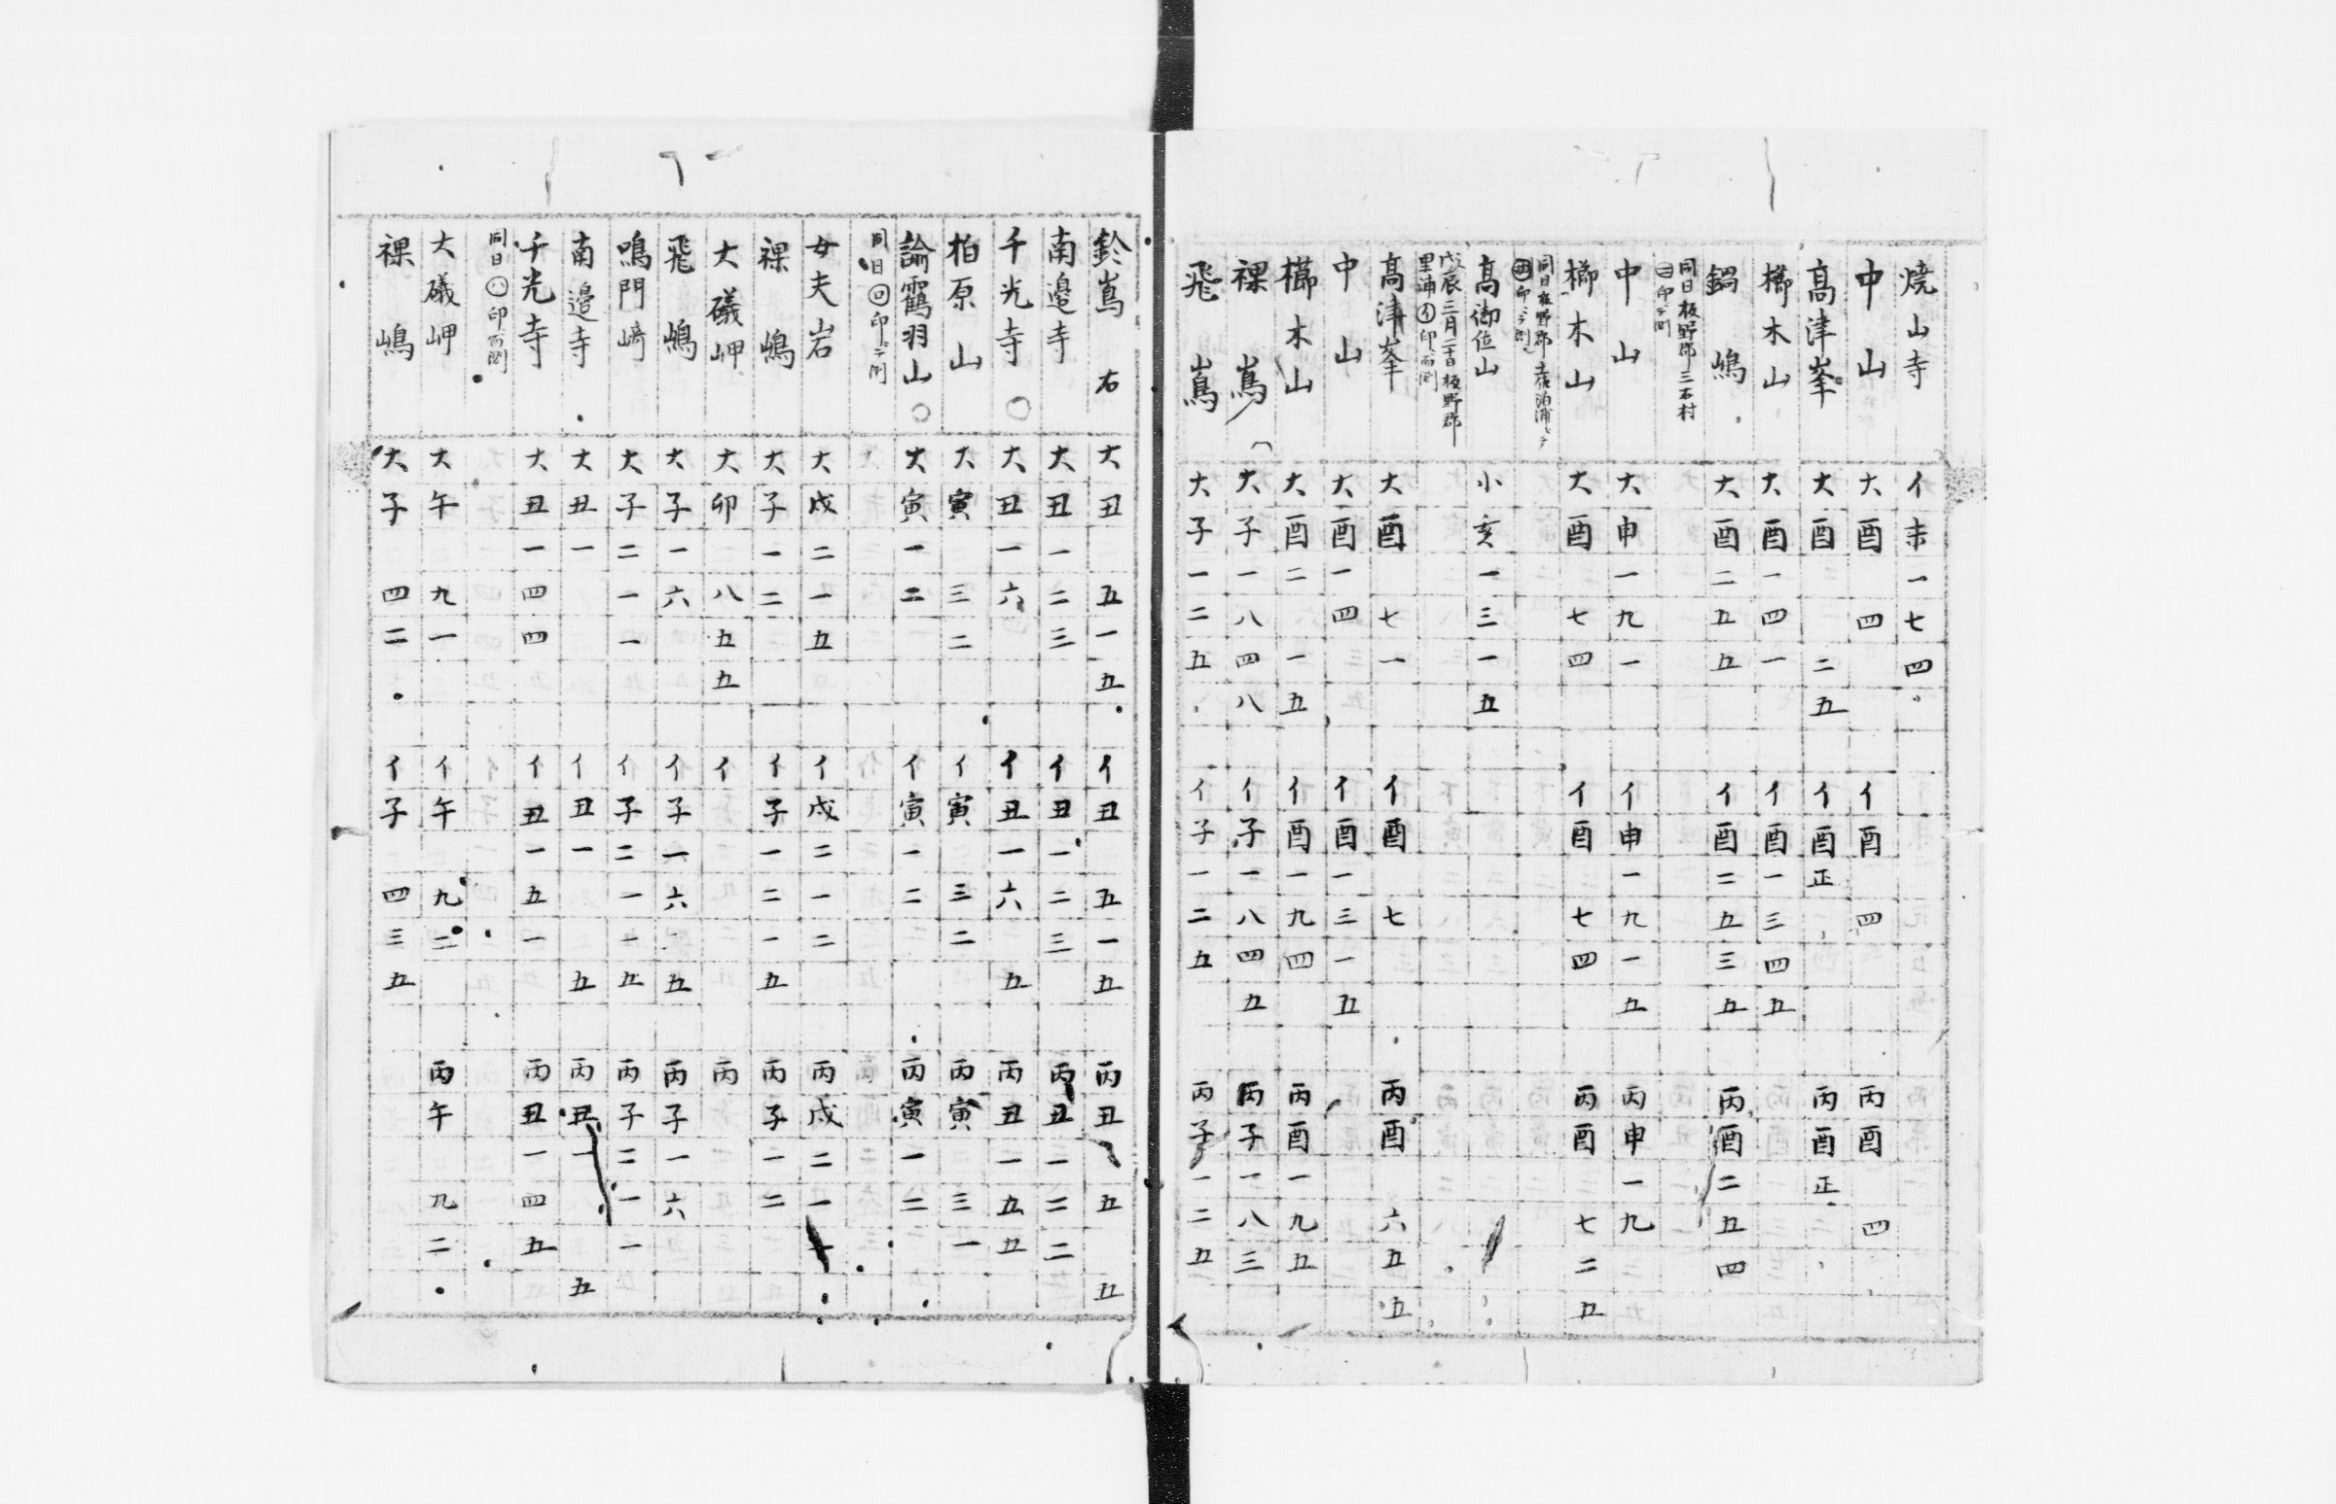 焼山寺 イ未一七四
中山 大酉 四 イ酉 四 丙酉 四
髙津峯 大酉 二五 イ酉正 丙酉正
櫛木山 大酉一四一 イ酉一三四五
鍋嶋 大酉二五五 イ酉二五三五 丙酉二五四
同日板野郡三石村
㊂印ニテ測
中山 大申一九一 イ申一九一五 丙申一九
櫛木山 大酉 七四 イ酉 七四 丙酉 七二五
同日板野郡土佐泊浦ニテ
印ニテ測
髙御位山 小亥一三一五
戊辰三月二十日板野郡
里浦㋑印ニ而測
髙津峯 大酉 七一 イ酉 七 丙酉 六五五
中山 大酉一四 イ酉一三一五
櫛木山 大酉二 一五 イ酉一九四 丙酉一九五
裸嶌 大子一八四八 イ子一八四五 丙子一八三
飛嶌 大子一二五 イ子一二五 丙子一二五
鈴嶌 右 大丑 五一五 イ丑 五一五 丙丑 五 五
南邉寺 大丑一二三 イ丑一二三 丙丑一二二
千光寺 大丑一六 イ丑一六 五 丙丑一五五
柏原山 大寅 三二 イ寅 三二 丙寅 三一
論靏羽山 大寅一二 イ寅一二 丙寅一二
同日㋺印ニテ測
女夫岩 大戌二一五 イ戌二一二 丙戌二一
裸嶋 大子一二 イ子一二一五 丙子一二
大礒岬 大卯 八五五 イ 丙
飛嶋 大子一六 イ子一六 五 丙子一六
鳴門﨑 大子二一一 イ子二一一五 丙子二一一
南邉寺 大丑一 イ丑一 五 丙丑一 五
千光寺 大丑一四四 イ丑一五一 丙丑一四五
同日㋩印ニ而測
大礒岬 大午 九一 イ午 九二 丙午 九二
裸嶋 大子 四二 イ子 四三五